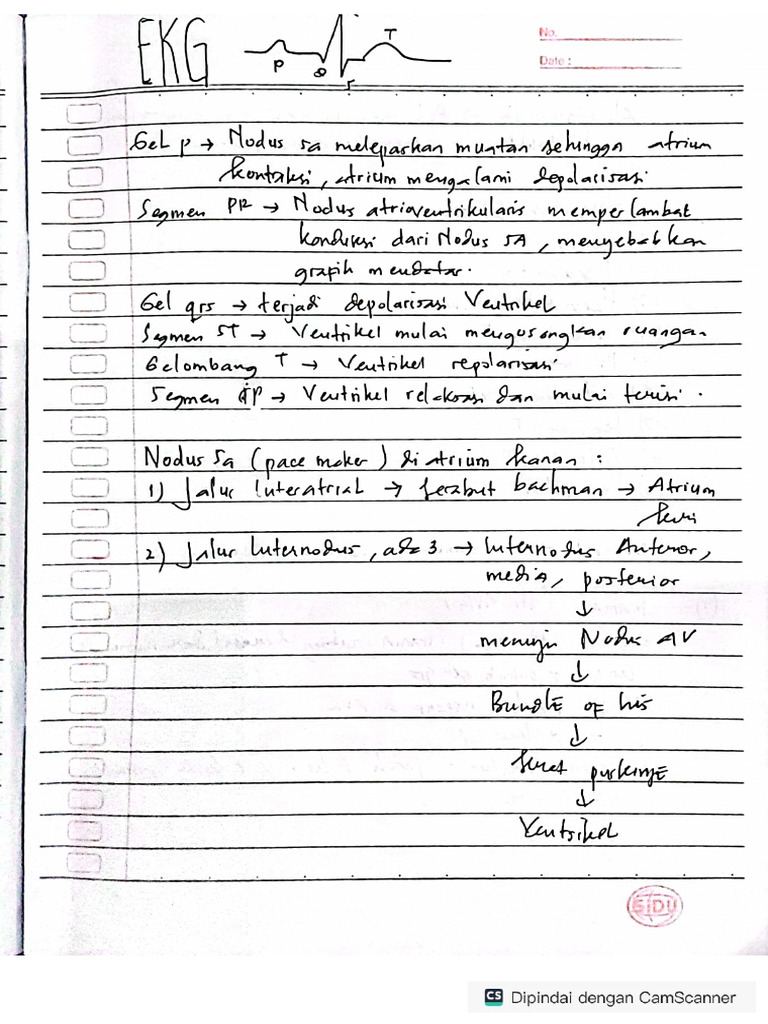 EKG
P
T
No.
Date :
Gel p → Nodus sa melepaskan muatan sehingga atrium
kontraksi, atrium mengalami depolarisasi
Segmen PR → Nodus atrioventrikularis memperlambat
konduksi dari Nodus SA, menyebabkan
grafik mendatar.
Gel qrs → terjadi depolarisasi Ventrikel
Segmen ST → Ventrikel mulai mengosongkan ruangan
Gelombang T → Ventrikel repolarisasi
Segmen TP → Ventrikel relaksasi dan mulai terisi .
Nodus sa (pace maker) di atrium kanan :
1) Jalur Interatrial → serabut bachman → Atrium
kiri
2) Jalur Internodus, ada 3 → Internodus Anterior,
media, posterior
↓
menuju Nodus AV
↓
Bundle of his
↓
purkinje
↓
Ventrikel
SIDU
CS Dipindai dengan CamScanner